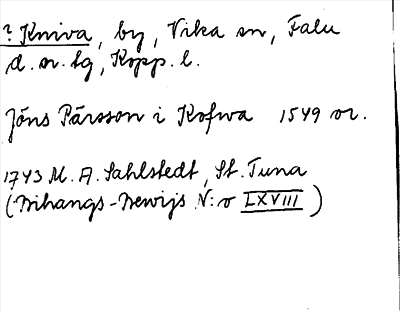 ? Kniva, by, Vika sn, Falu
d. sr. tg, Kopp. l.
Jöns Pärsson i Kofwa 1549 or.
1743 M. A. Sahlstedt, St. Tuna
(Bihangs-Bewijs N:o LXVIII)